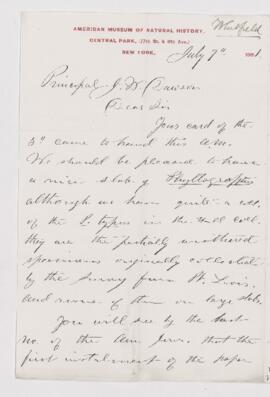 Whitfield
AMERICAN MUSEUM OF NATURAL HISTORY,
CENTRAL PARK, (77th St. & 8th Ave.)
NEW YORK, July 7th 1881.
Principal J. W. Dawson
Dear Sir
Your card of the
5th came to hand this A.M.
We should be pleased to have
a nice slab of
although we have quite a
of the types in the Hall Coll.
they are the partially
specimens originally collected
by the Survey from Pt. Levis.
and some of them on large slabs.
You will see by the last
no. of the Am Jour. that the
first instalment of the paper